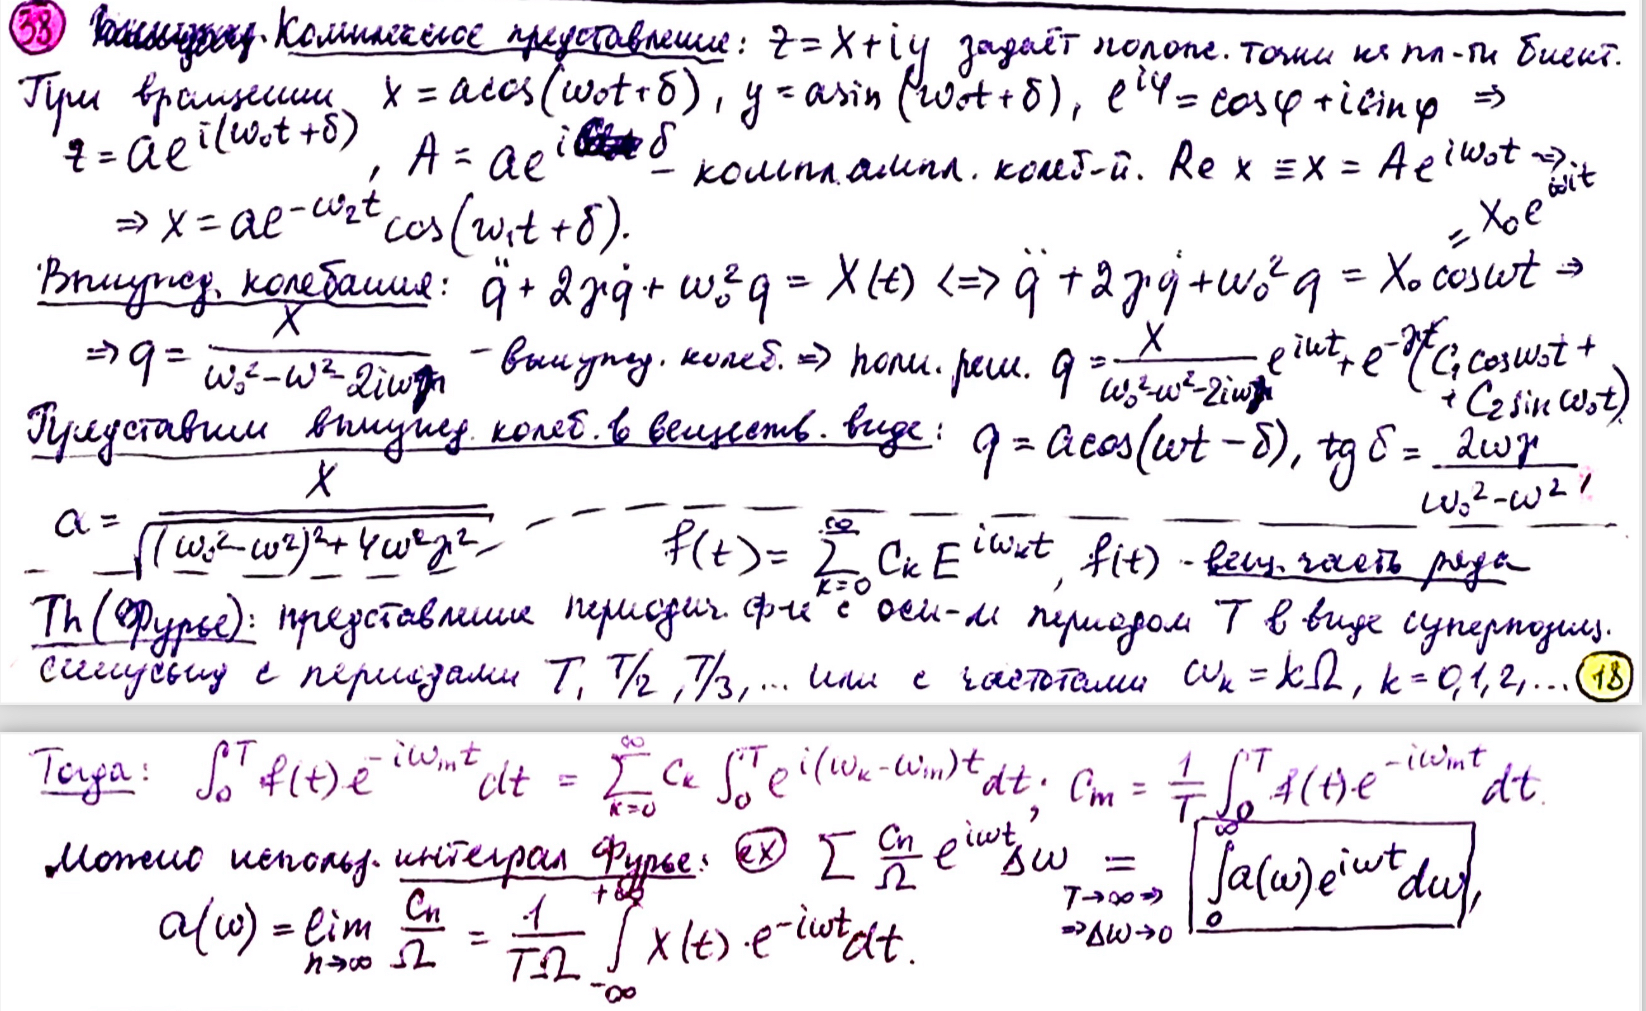 38 Комплексное представление: z = x + iy задаёт полож. точки на пл-ти биект.
При вращении x = acos(ω₀t+δ), y = asin(ω₀t+δ), e^{iφ} = cosφ + isinφ ⇒
z = ae^{i(ω₀t+δ)}, A = ae^{iδ} – компл. ампл. колеб-й. Re x ≡ x = Ae^{iω₀t} ⇒
⇒ x = ae^{-ω₂t} cos(ω₁t+δ). = X₀e^{iωt}
Вынужд. колебания: q̈ + 2γq̇ + ω₀²q = X(t) <=> q̈ + 2γq̇ + ω₀²q = X₀ cosωt ⇒
⇒ q = X/(ω₀²-ω²-2iωγ) – вынужд. колеб. ⇒ полн. реш. q = X/(ω₀²-ω²-2iωγ) e^{iωt} + e^{-γt}(C₁cosω₀t + C₂sinω₀t)
Представим вынужд. колеб. в веществ. виде: q = acos(ωt-δ), tgδ = 2ωγ/(ω₀²-ω²),
a = X/√((ω₀²-ω²)²+4ω²γ²) f(t) = ∑_{k=0}^{∞} C_k E^{iω_kt}, f(t) - вещ. часть ряда
Th (Фурье): представление периодич. ф-и с осн-м периодом T в виде суперпозиц.
синусоид с периодами T, T/2, T/3, ... или с частотами ω_k = kΩ, k = 0,1,2,... 18
Тогда: ∫₀^T f(t)e^{-iω_mt}dt = ∑_{k=0}^{∞} C_k ∫₀^T e^{i(ω_k-ω_m)t}dt; C_m = 1/T ∫₀^T f(t)e^{-iω_mt}dt.
Можно использ. интеграл Фурье: ex ∑ C_n/Ω e^{iωt}Δω =_{T→∞ ⇒ ⇒Δω→0} ∫₀^∞ a(ω)e^{iωt}dω,
a(ω) = lim_{n→∞} C_n/Ω = 1/(TΩ) ∫_{-∞}^{+∞} X(t)·e^{-iωt}dt.